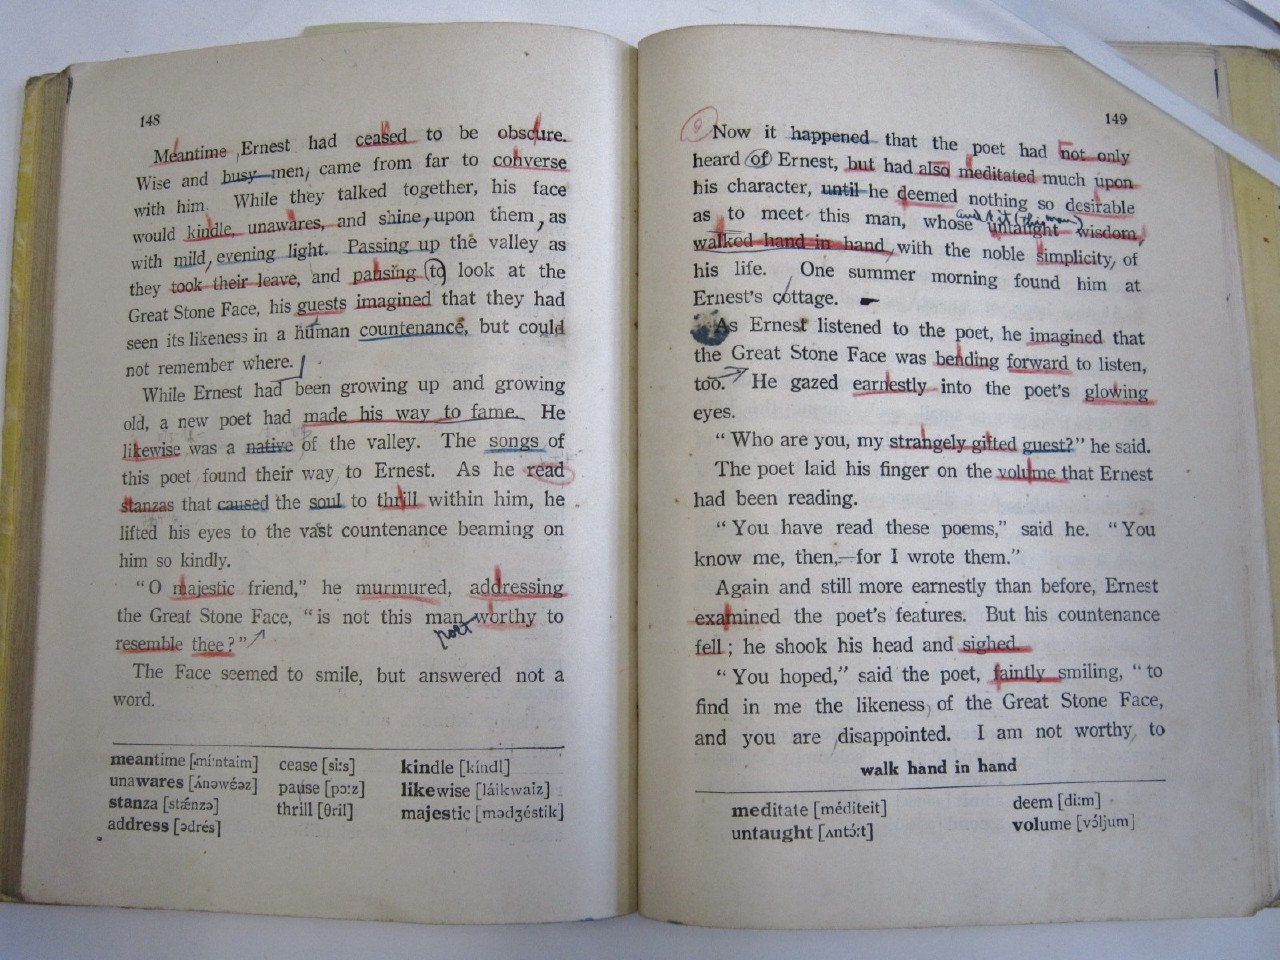 148
Meantime Ernest had ceased to be obscure.
Wise and busy men, came from far to converse
with him. While they talked together, his face
would kindle, unawares, and shine, upon them, as
with mild, evening light. Passing up the valley as
they took their leave, and pausing to look at the
Great Stone Face, his guests imagined that they had
seen its likeness in a human countenance, but could
not remember where.
While Ernest had been growing up and growing
old, a new poet had made his way to fame. He
likewise was a native of the valley. The songs of
this poet found their way to Ernest. As he read
stanzas that caused the soul to thrill within him, he
lifted his eyes to the vast countenance beaming on
him so kindly.
"O majestic friend," he murmured, addressing
the Great Stone Face, "is not this man worthy to
poet
resemble thee?"
The Face seemed to smile, but answered not a
word.
meantime [míːntaim] cease [siːs] kindle [kíndl]
unawares [ʌ́nəwɛ́əz] pause [pɔːz] likewise [láikwaiz]
stanza [stǽnzə] thrill [θril] majestic [mədʒéstik]
address [ədrés]
149
Now it happened that the poet had not only
heard of Ernest, but had also meditated much upon
his character, until he deemed nothing so desirable
as to meet this man, whose untaught wisdom,
walked hand in hand, with the noble simplicity, of
his life. One summer morning found him at
Ernest's cottage.
As Ernest listened to the poet, he imagined that
the Great Stone Face was bending forward to listen,
too. He gazed earnestly into the poet's glowing
eyes.
"Who are you, my strangely gifted guest?" he said.
The poet laid his finger on the volume that Ernest
had been reading.
"You have read these poems," said he. "You
know me, then,—for I wrote them."
Again and still more earnestly than before, Ernest
examined the poet's features. But his countenance
fell; he shook his head and sighed.
"You hoped," said the poet, faintly smiling, "to
find in me the likeness, of the Great Stone Face,
and you are disappointed. I am not worthy to
walk hand in hand
meditate [méditeit] deem [diːm]
untaught [ʌntɔ́ːt] volume [vɔ́ljum]